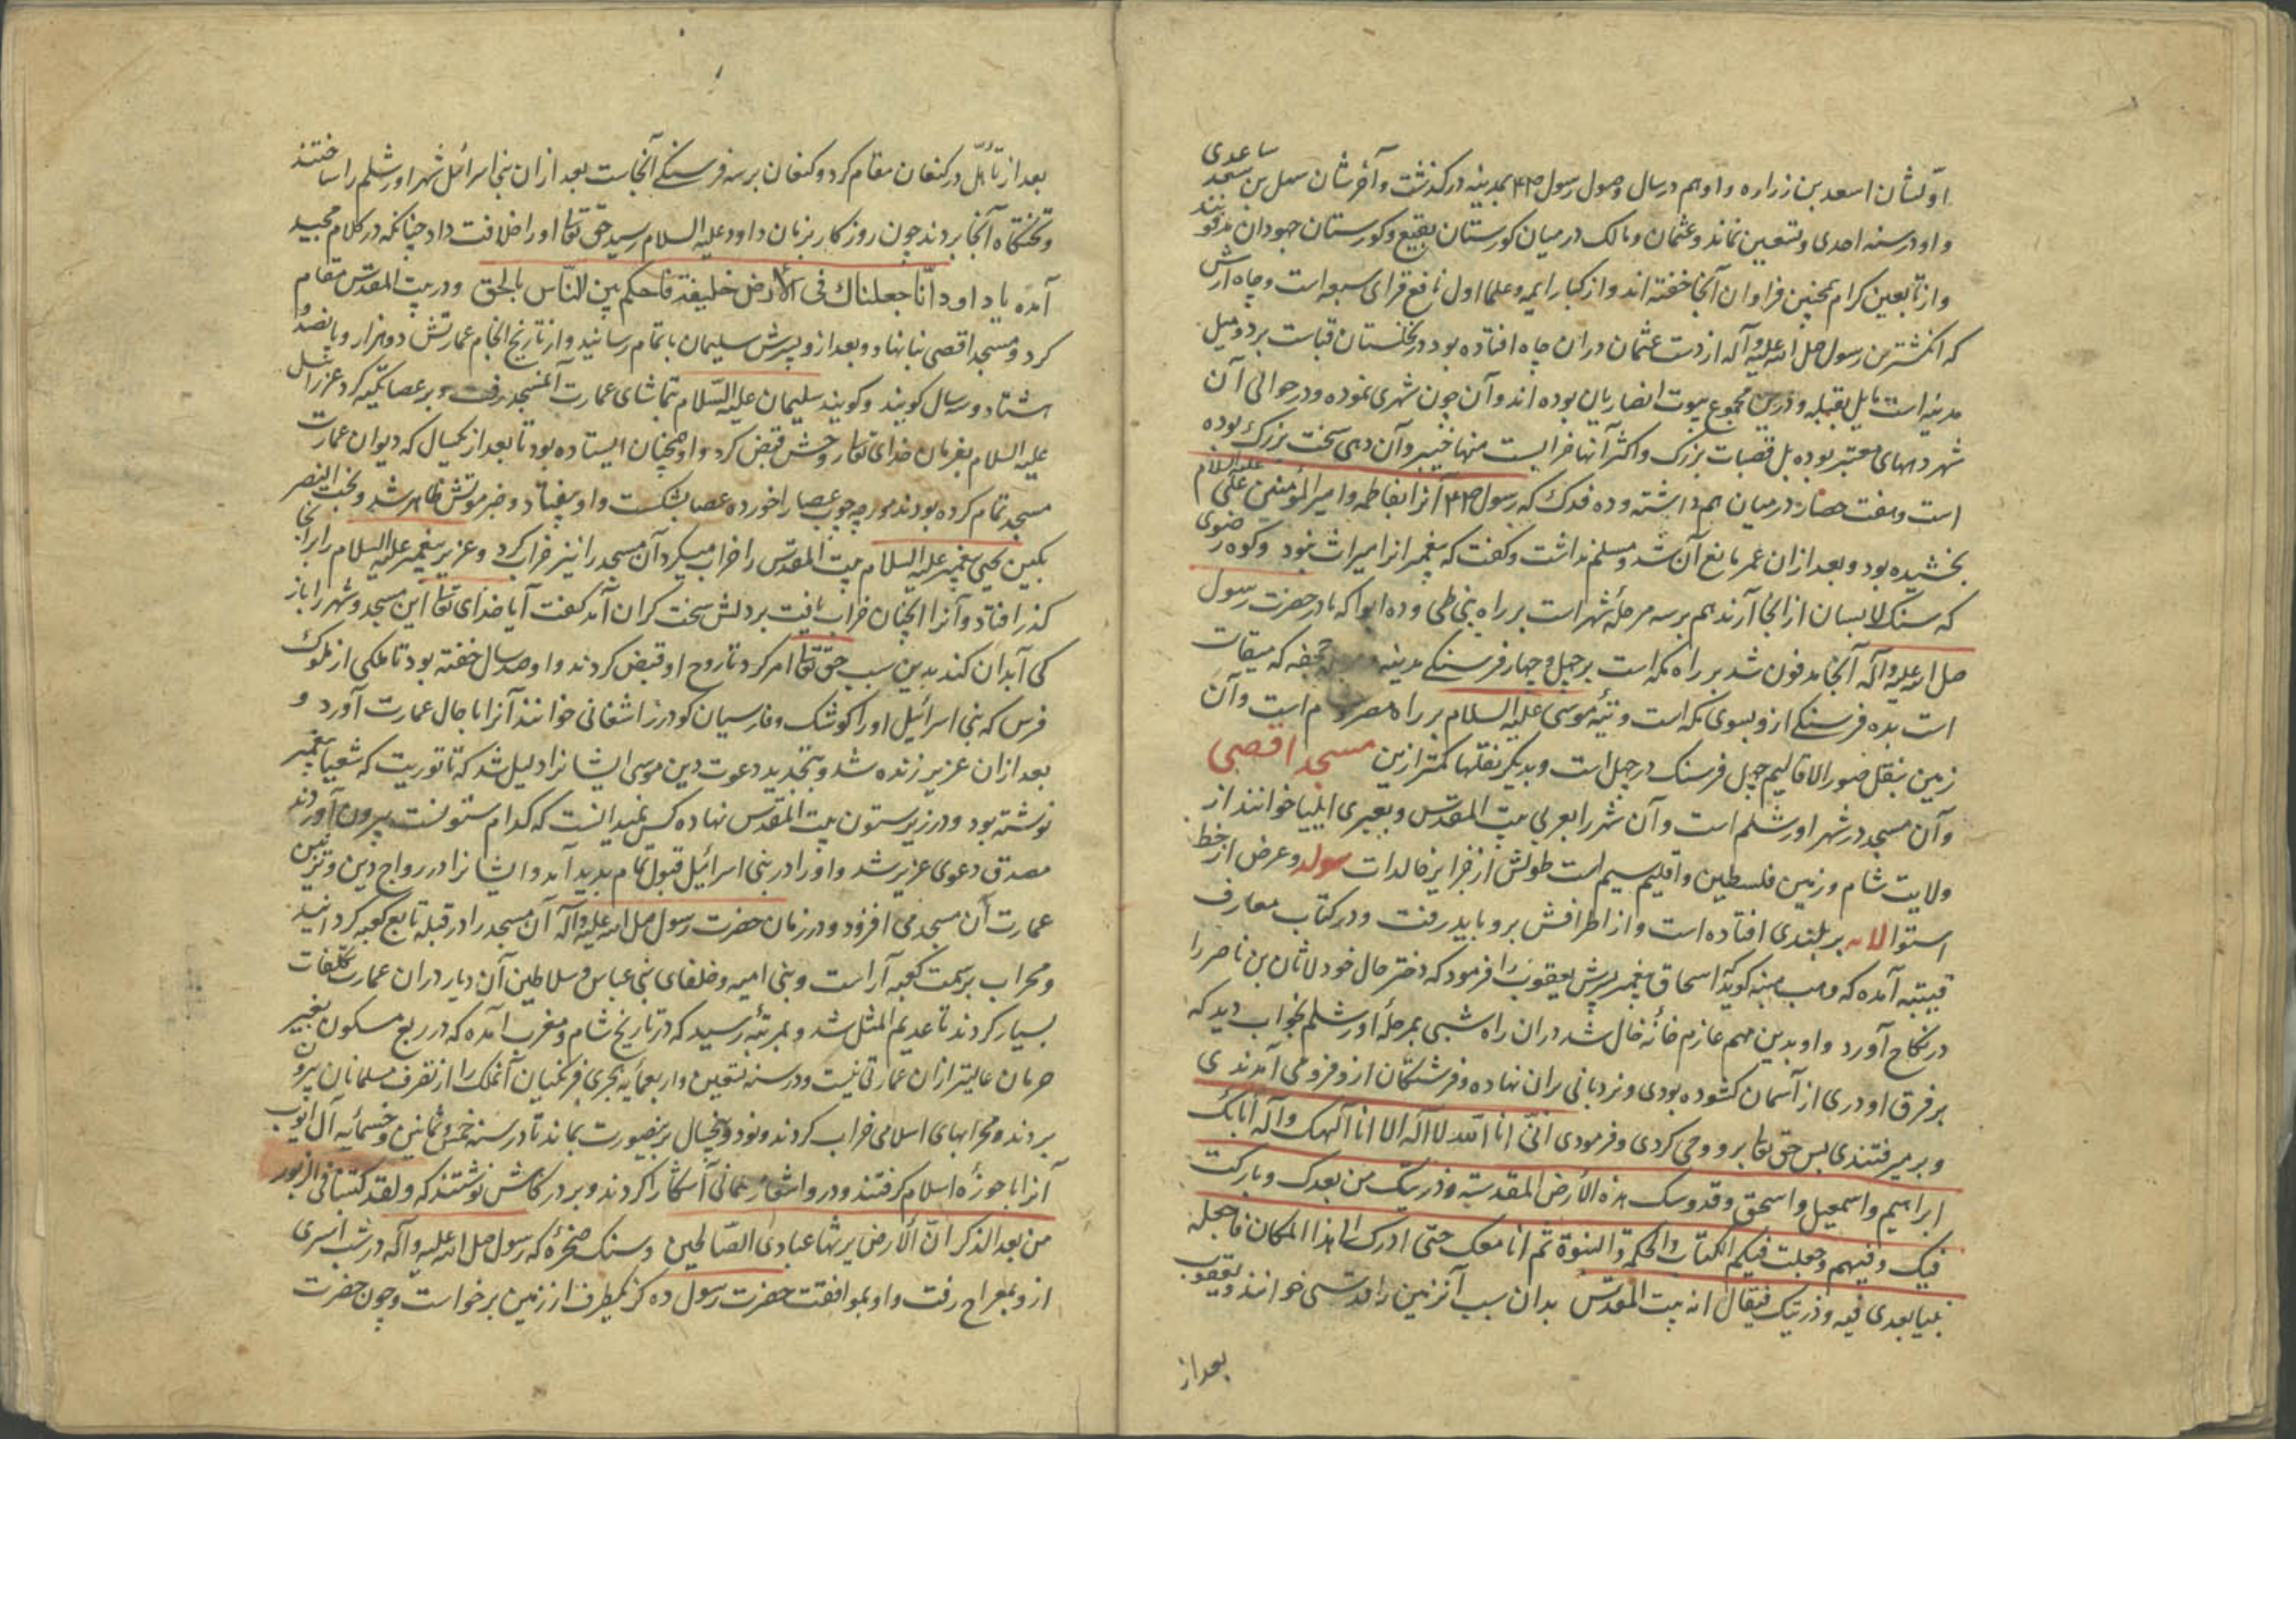 اولشان اسعد بن زراره و او هم در سال وصول رسول صلعم بمدینه درکذشت و آخرشان سهل بن سعد ساعدی
و او در سنه احدی و تسعین نماند و عثمان و مالک در میان کورستان بقیع و کورستان جهودان مدفونند
و از تابعین کرام همچنین فراوان آنجا خفته اند و از کبار ایمه و علما اول نافع قرای سبعه است و چاه اریس
که انکشترین رسول صلی الله علیه و آله از دست عثمان در ان چاه افتاده بود در نخلستان قباست بر دو میل
مدینه است مایل بقبله و درین مجموع بیوت انصاریان بوده اند و آن چون شهری نموده و در حوالی آن
شهر دههای معتبر بوده بل قصبات بزرک و اکثر آنها خرابست منها خیبر و آن دهی سخت بزرک بوده
است و هفت حصار در میان هم داشته و ده فدک که رسول صلعم آنرا بفاطمه و امیر المؤمنین علی علیه السلام
بخشیده بود و بعد از ان عمر مانع آن شد و مسلم نداشت و کفت که پیغمبر انرا میراث نبود و کوه رضوی
که سنک لابسان از انجا آرند هم برسه مرحله شهر است بر راه و ده ابوا که مادر حضرت رسول
صلی الله علیه و آله آنجا مدفون شد بر راه مکه است بر چهل و چهار فرسنکی مدینه جحفه که میقات
است بده فرسنکی از و بسوی مکه است و تیه موسی علیه السلام بر راه مصر است و آن
زمین بنقل صور الاقالیم چهل فرسنک در چهل است و بدیکر نقلها کمتر ازین مسجد اقصی
و آن مسجد در شهر اورشلم است و آن شهر را بعربی بیت المقدس و بعبری ایلیا خوانند از
ولایت شام و زمین فلسطین و اقلیم سیم است طولش از جزایر خالدات و عرض از خط
استوا بر بلندی افتاده است و از اطرافش برو باید رفت و در کتاب معارف
قبیتبه آمده که وهب منبه کوید که اسحاق پیغمبر پسرش یعقوب را فرمود که دختر خال خود لاثان بن ناصر را
در نکاح آورد و او بدین مهم عازم خانه خال شد در ان راه شبی بمرحله اورشلم بخواب دید که
بر فرق او دری از آسمان کشوده بودی و نردبانی بران نهاده و فرشتکان از و فرو می آمدندی
و برمیرفتندی پس حق تعا برو وحی کردی و فرمودی انی انا الله لا اله الا انا الهک و اله ابائک
ابراهیم و اسمعیل و اسحق و قدوسک هذه الارض المقدسة و ذریتک من بعدک و بارکت
فیک و فیهم و جعلت فیکم الکتاب و الحکمة و النبوة ثم انا معک حتی ادرک الی هذا المکان فاجعله
بیتا یعبدی فیه و ذریتک فیقال انه بیت المقدس بدان سبب آنزمین را قدسی خوانند و یعقوب
بعد از
بعد از تأهل در کنعان مقام کرد و کنعان برسه فرسنکی آنجاست بعد از ان بنی اسرائیل شهر اورشلم را ساختند
و تختکاه آنجا بردند چون روز کار بزمان داود علیه السلام رسید حق تعا او را خلافت داد چنانکه در کلام مجید
آمده یا داود انا جعلناک فی الارض خلیفة فاحکم بین الناس بالحق و در بیت المقدس مقام
کرد و مسجد اقصی بنا نهاد و بعد از و پسرش سلیمان باتمام رسانید و از تاریخ انجام عمارتش دو هزار و پانصد و
هشتاد و سه سال کویند و کویند سلیمان علیه السلام بتماشای عمارت آنمسجد رفت و بر عصا تکیه کرد عزرائیل
علیه السلام بفرمان خدای تعا روحش قبض کرد و او همچنان ایستاده بود تا بعد از یکسال که دیوان عمارت
مسجد تمام کرده بودند مورچه چوب عصا را خورده عصا بشکست و او بیفتاد و خبر موتش ظاهر شد و بخت النصر
بکین یحیی پیغمبر علیه السلام بیت المقدس را خراب میکرد آن مسجد را نیز خراب کرد و عزیر پیغمبر علیه السلام را برانجا
کذر افتاد و آنرا انچنان خراب یافت بر دلش سخت کران آمد کفت آیا خدای تعا این مسجد و شهر را باز
کی آبدان کند بدین سبب حق تعا امر کرد تا روح او قبض کردند و او صد سال خفته بود تا ملکی از ملوک
فرس که بنی اسرائیل او را کوشک و فارسیان کودرز اشغانی خوانند آنرا با حال عمارت آورد و
بعد از ان عزیر زنده شد و بتجدید دعوت دین موسی ایشانرا دلیل شد که تا توریت که شعیا پیغمبر
نوشته بود و در زیر ستون بیت المقدس نهاده کس نمیدانست که کدام ستونست بیرون آوردند
مصدق دعوی عزیر شد و او را در بنی اسرائیل قبول تمام بدید آمد و ایشانرا در رواج دین و تزیین
عمارت آن مسجد می افزود و در زمان حضرت رسول صلی الله علیه و آله آن مسجد را در قبله تابع کعبه کردانید
و محراب بر سمت کعبه آراست و بنی امیه و خلفای بنی عباس و سلاطین آن دیار دران عمارت تکلفات
بسیار کردند تا عدیم المثل شد و بمرتبه رسید که در تاریخ شام و مغرب آمده که در ربع مسکون بغیر
حرمان عالیتر از ان عمارتی نیست و در سنه تسعین و اربعمایه هجری فرنکیان آنملک را از تصرف مسلمانان بیرون
بردند و محرابهای اسلامی خراب کردند و نود و پنجسال برینصورت بماند تا در سنه خمس و ثمانین و خمسمائه آل ایوب
آنرا با حوزه اسلام کرفتند و درو اشعار آشکارا کردند و بر درکاش نوشتند که و لقد کتبنا فی الزبور
من بعد الذکر ان الارض یرثها عبادی الصالحین و سنک صخره که رسول صلی الله علیه و آله در شب اسری
از و بمعراج رفت و او بموافقت حضرت رسول ده کز یکطرف از زمین برخواست و چون حضرت